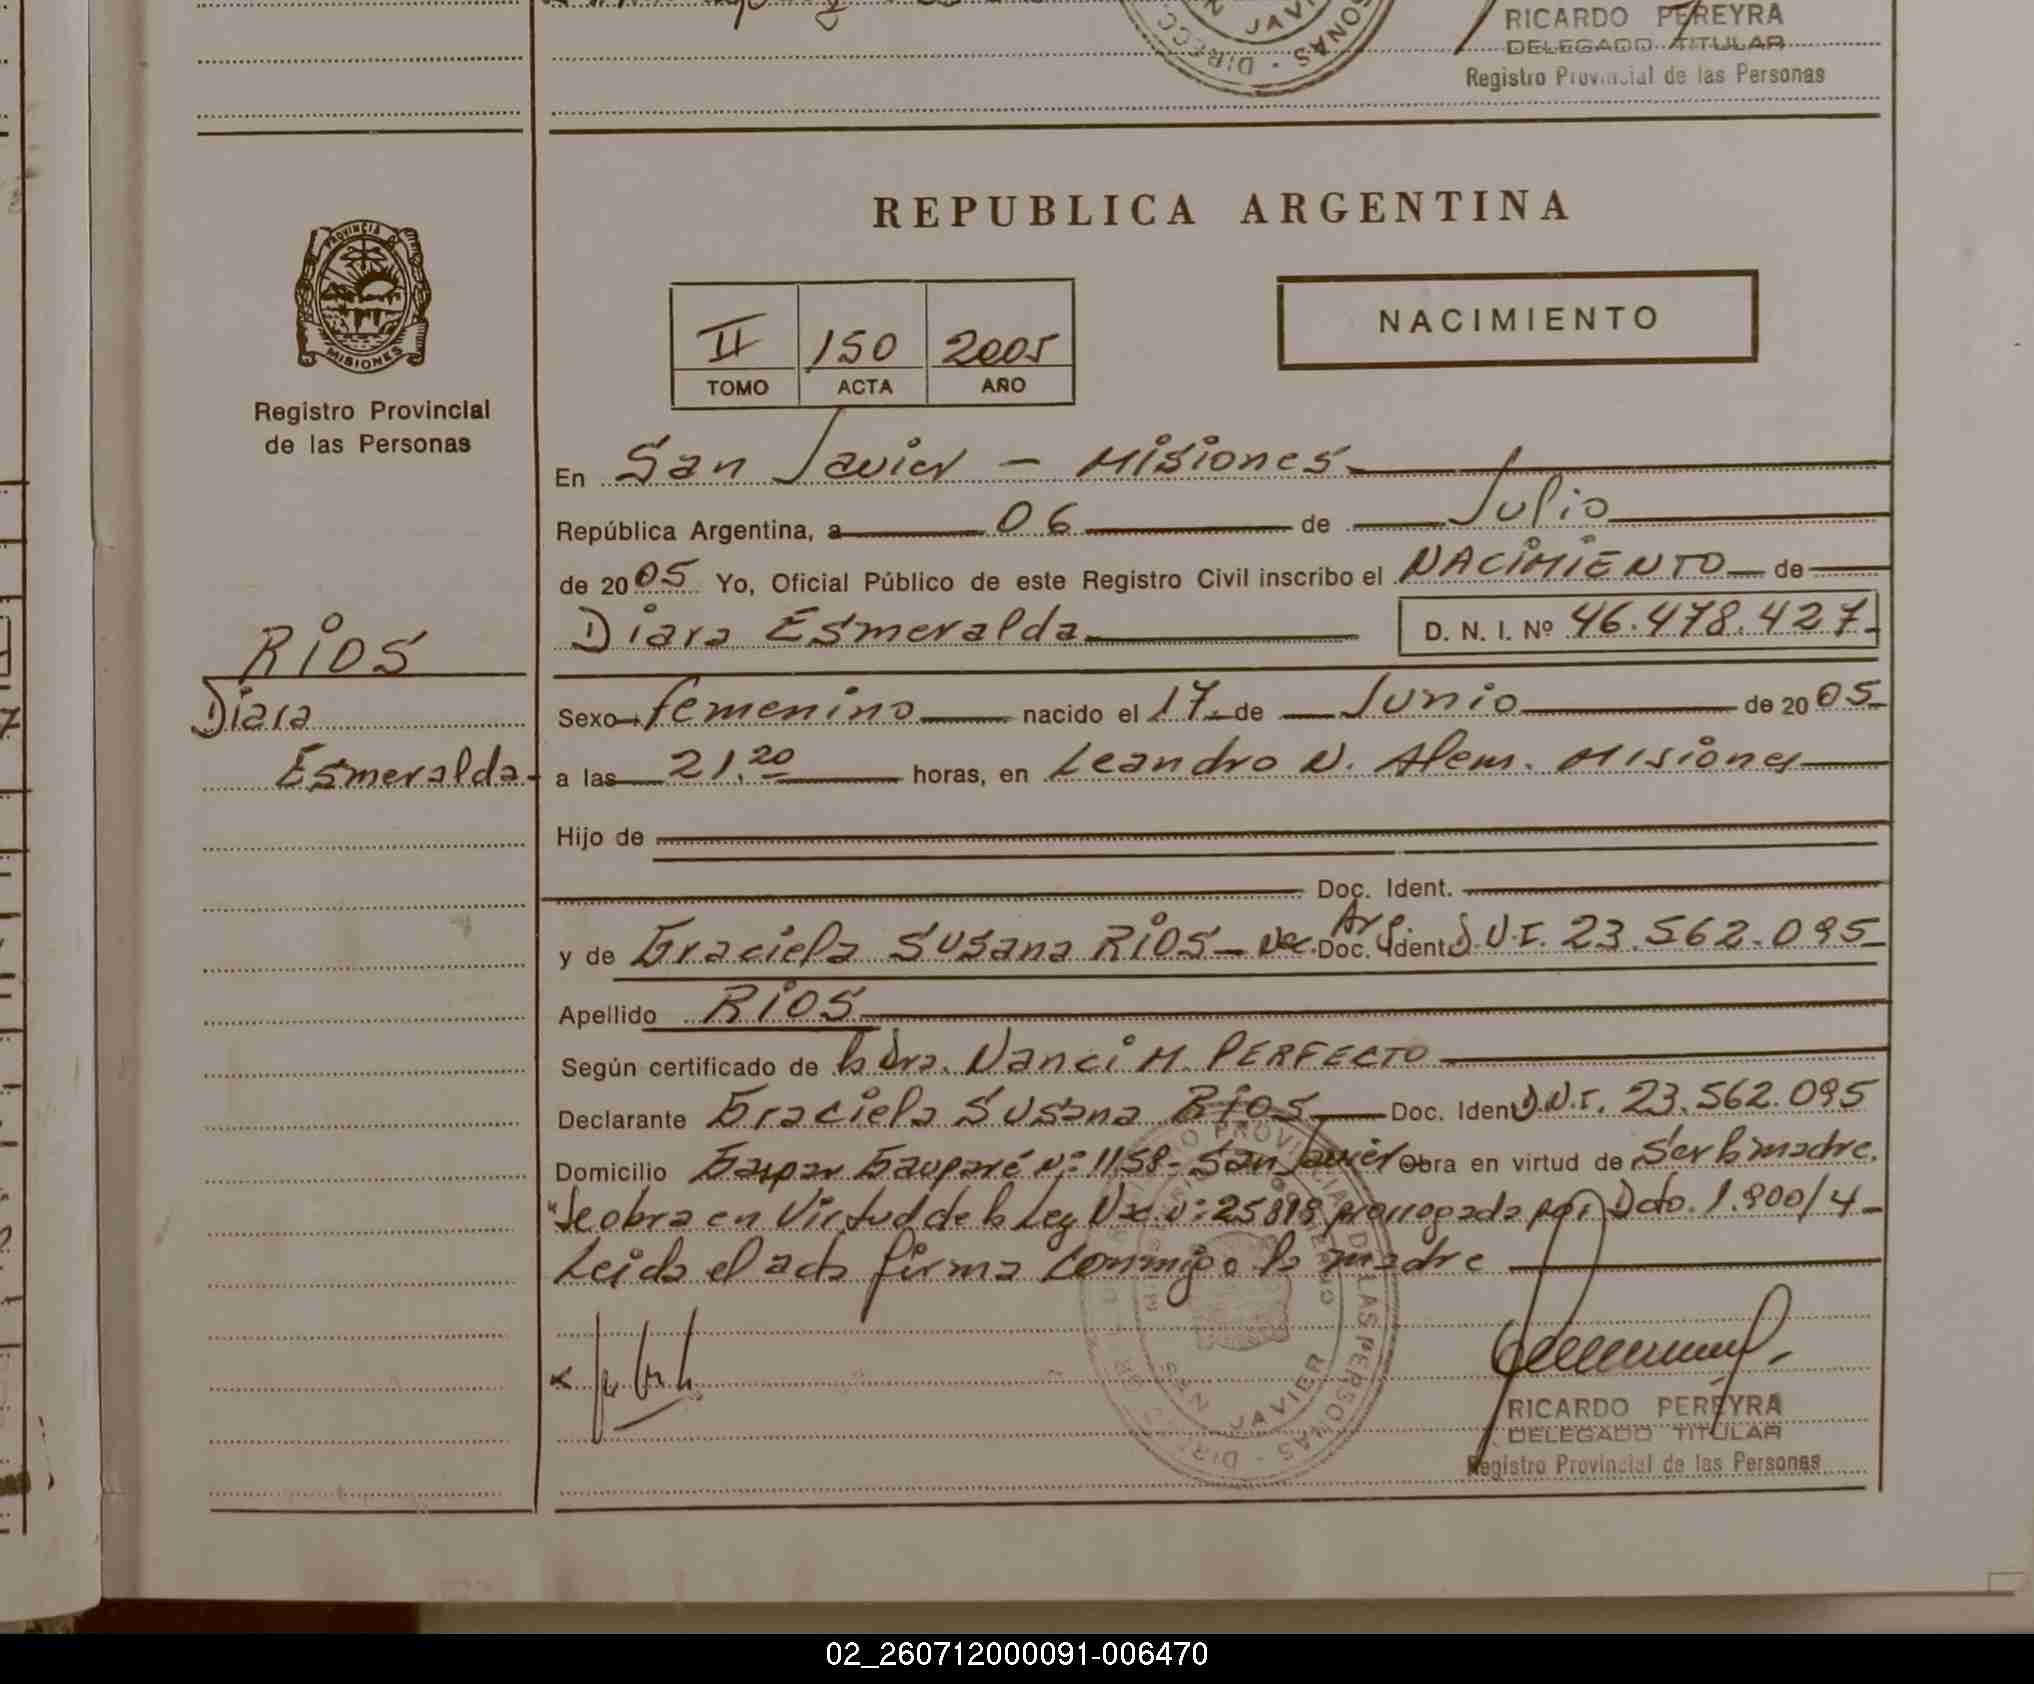 RICARDO PEREYRA
DELEGADO TITULAR
Registro Provincial de las Personas
REPUBLICA ARGENTINA
PROVINCIA DE
MISIONES
Registro Provincial
de las Personas
II 150 2005
TOMO ACTA AÑO
NACIMIENTO
En San Javier - Misiones
República Argentina, a 06 de Julio
de 2005 Yo, Oficial Público de este Registro Civil inscribo el NACIMIENTO de
Diara Esmeralda D. N. I. Nº 46.478.427
RIOS
Diara
Esmeralda
Sexo femenino nacido el 17 de Junio de 2005
a las 21.20 horas, en Leandro N. Alem. Misiones
Hijo de
Doc. Ident.
y de Graciela Susana RIOS - Nac. Arg. Doc. Ident D.N.I. 23.562.095
Apellido RIOS
Según certificado de la Dra. Nanci M. PERFECTO
Declarante Graciela Susana RIOS Doc. Ident D.N.I. 23.562.095
Domicilio Gaspar Nº 1158 - San Javier Obra en virtud de Ser la madre.
"Se obra en Virtud de la Ley Nac. Nº 25819 prorrogada por Dcto. 1.900/4 -
Leida el acta firma conmigo la madre
SAN JAVIER
RICARDO PEREYRA
DELEGADO TITULAR
Registro Provincial de las Personas
02_260712000091-006470